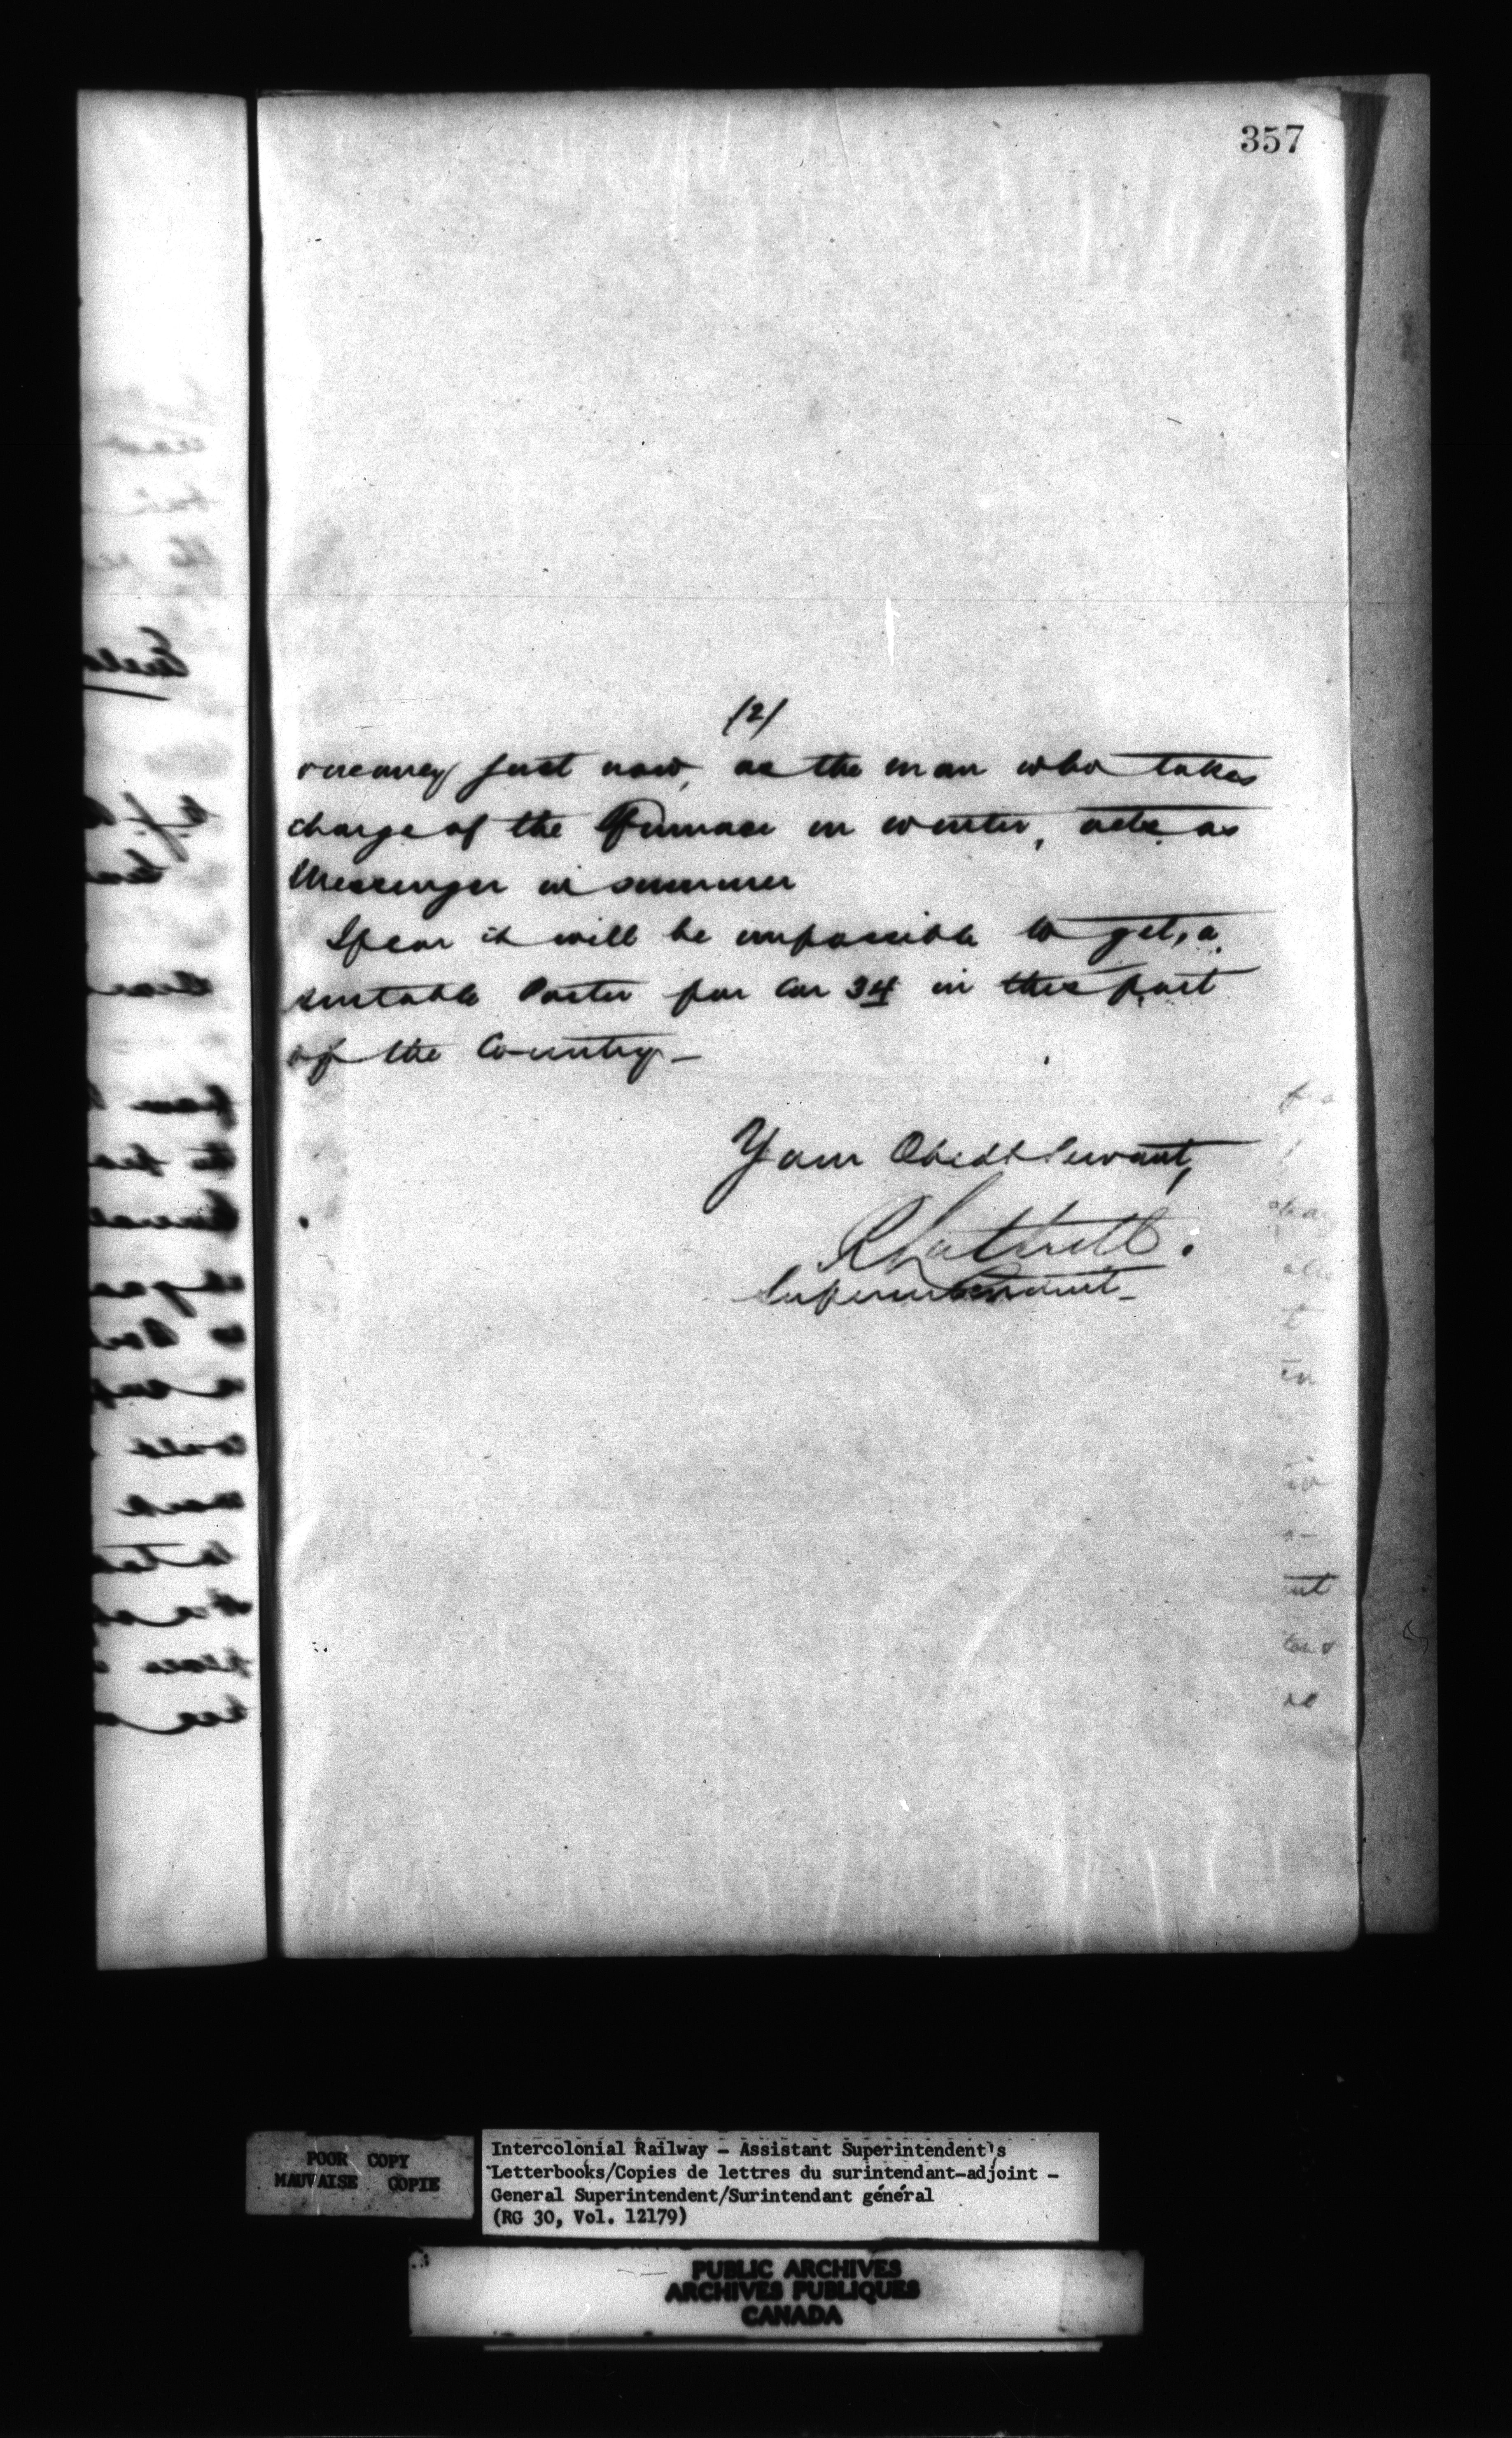 357
(2)
vacancy just now, as the man who takes
charge of the Furnace in winter, acts as
Messenger in summer
I fear it will be impossible to get, a
suitable Porter for Car 34 in this part
of the Country —
Your Obedt Servant,
Superintendent —
POOR COPY
MAUVAISE COPIE
Intercolonial Railway - Assistant Superintendent's
Letterbooks/Copies de lettres du surintendant-adjoint -
General Superintendent/Surintendant général
(RG 30, Vol. 12179)
PUBLIC ARCHIVES
ARCHIVES PUBLIQUES
CANADA